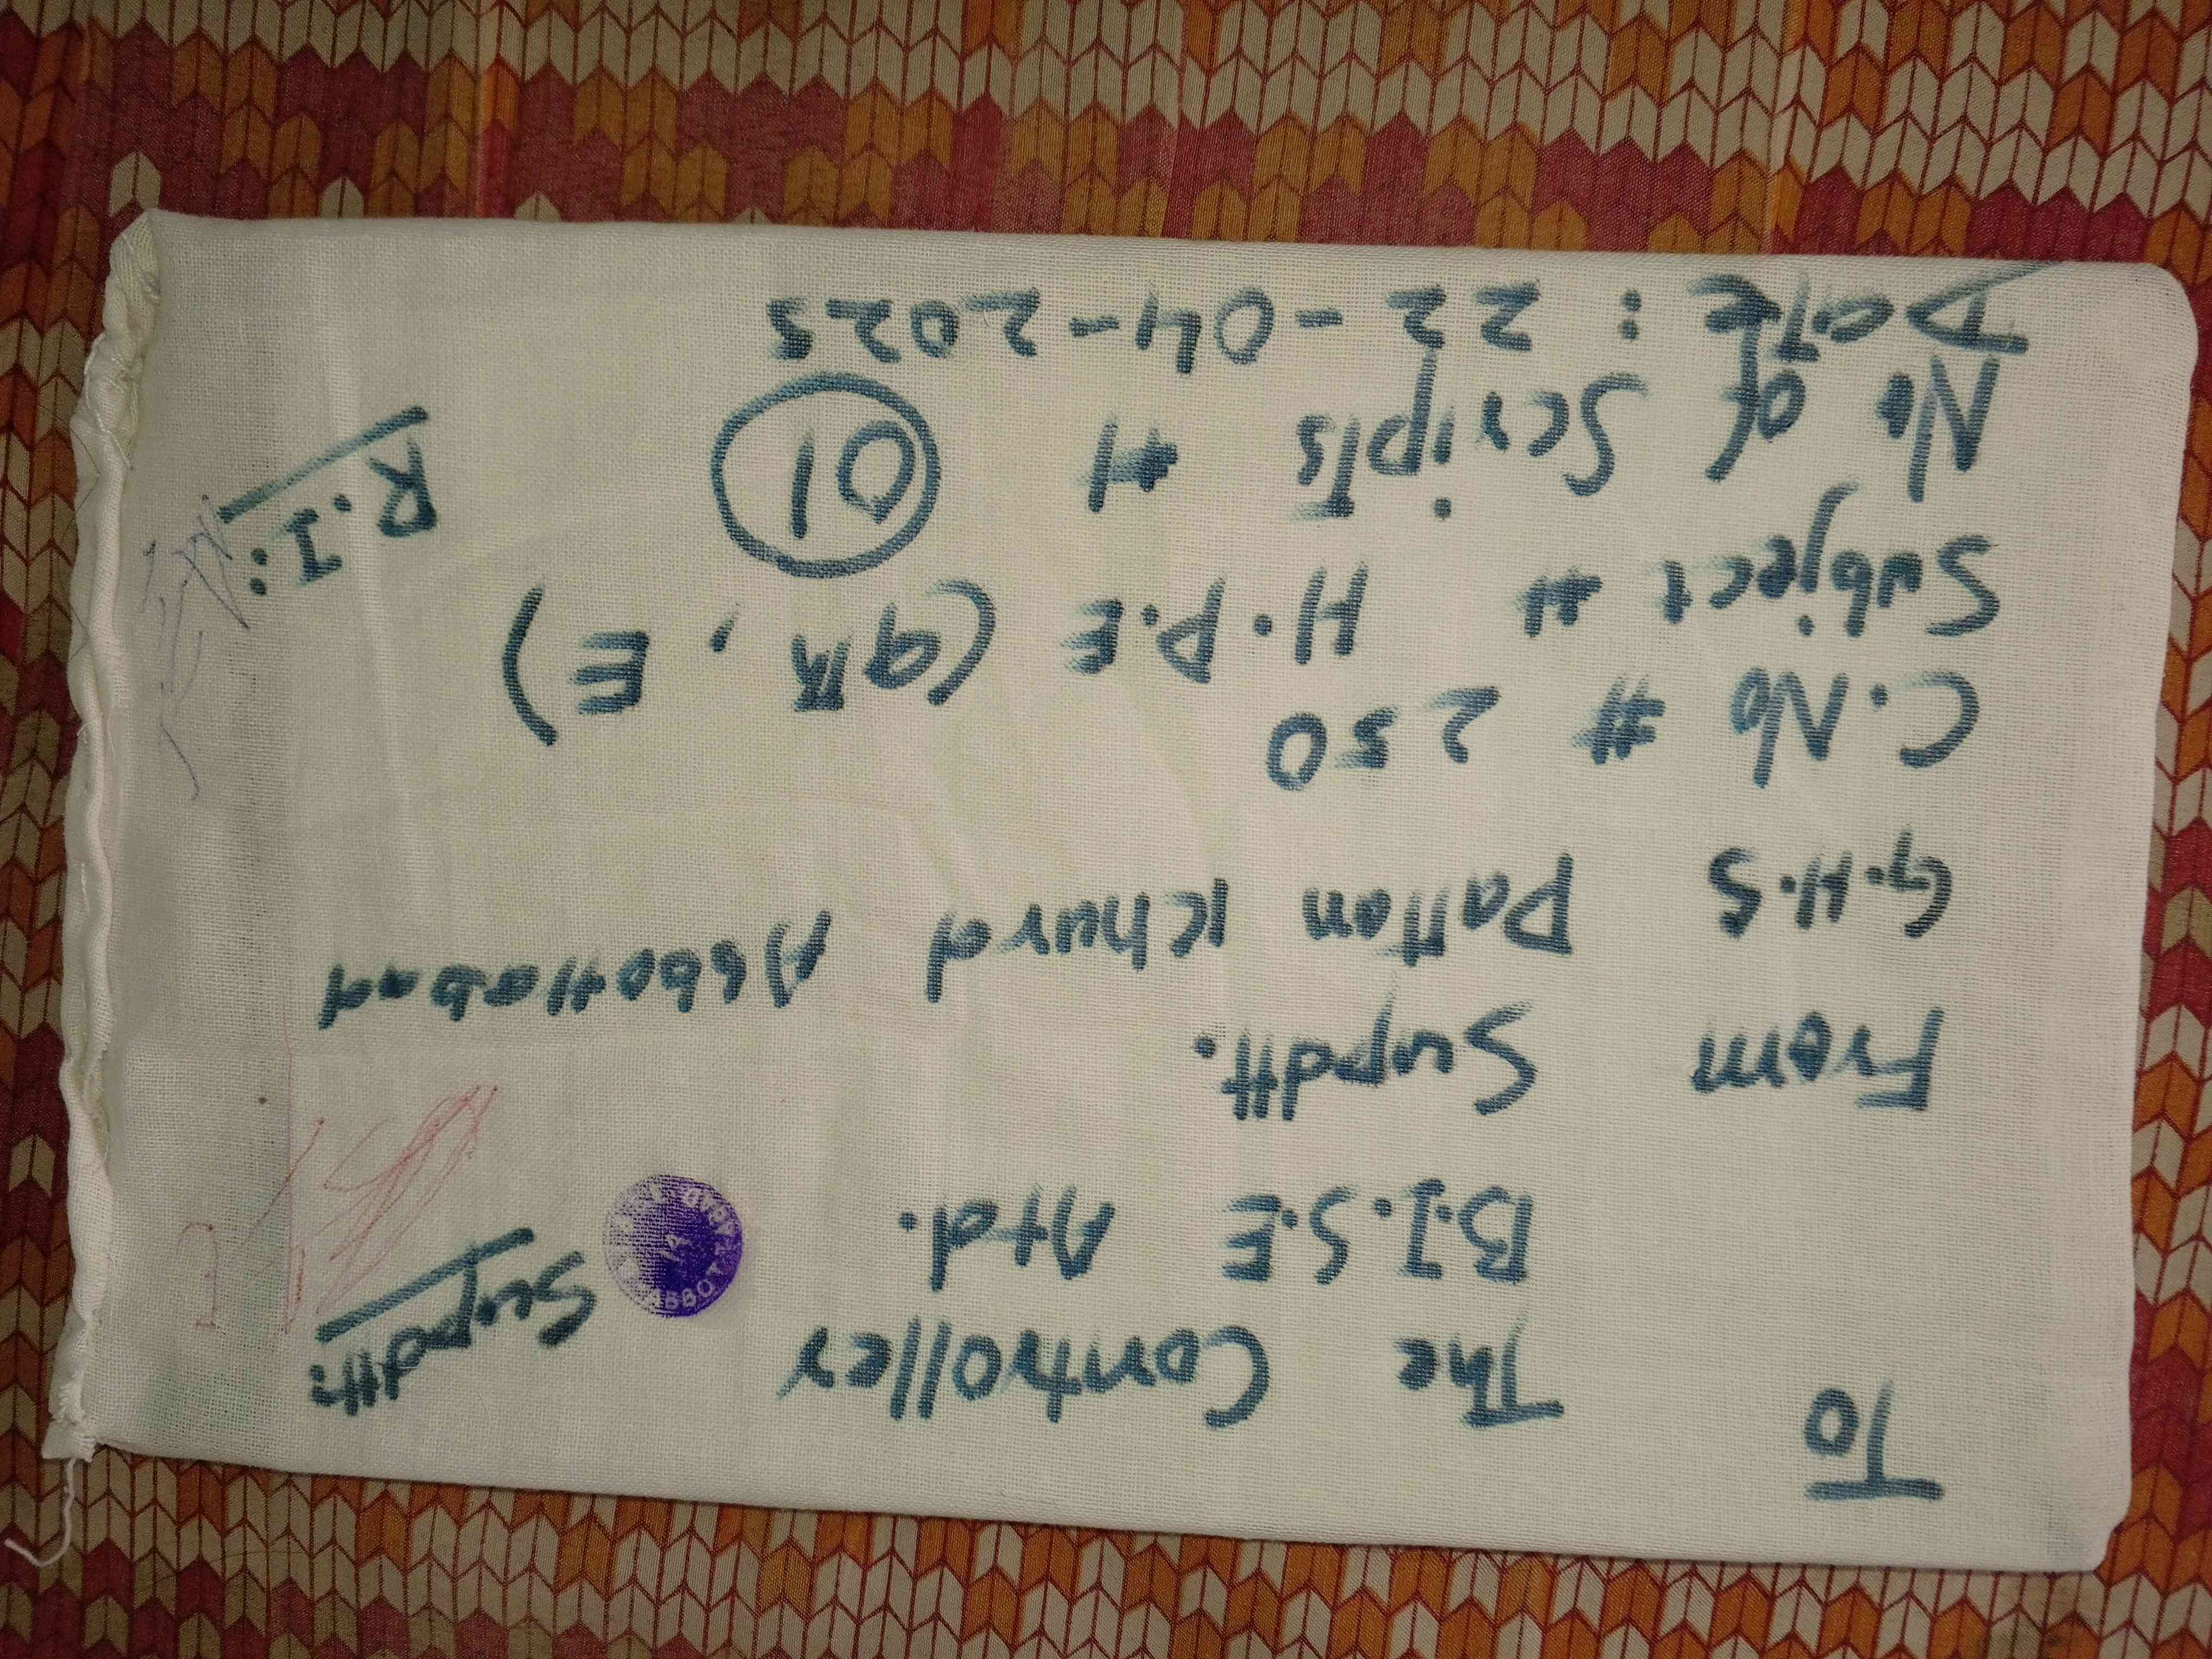 To
The Controller
B.I.S.E Atd.
From Supdtt.
G.H.S Pattan Khurd Abbottabad
C.No # 250
Subject # H.P.E (9th, E)
No of Scripts # 01
Date : 22-04-2025
Supdtt:
R.I: